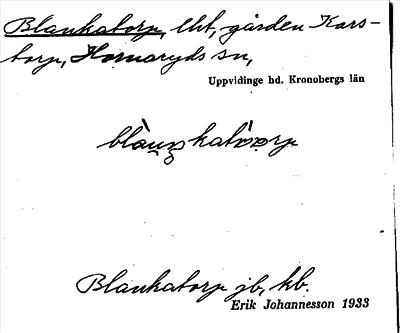 Blankatorp, lht, gården Kars-
torp, Hornaryds sn,
Uppvidinge hd. Kronobergs län
Blankatorp jb, kb.
Erik Johannesson 1933